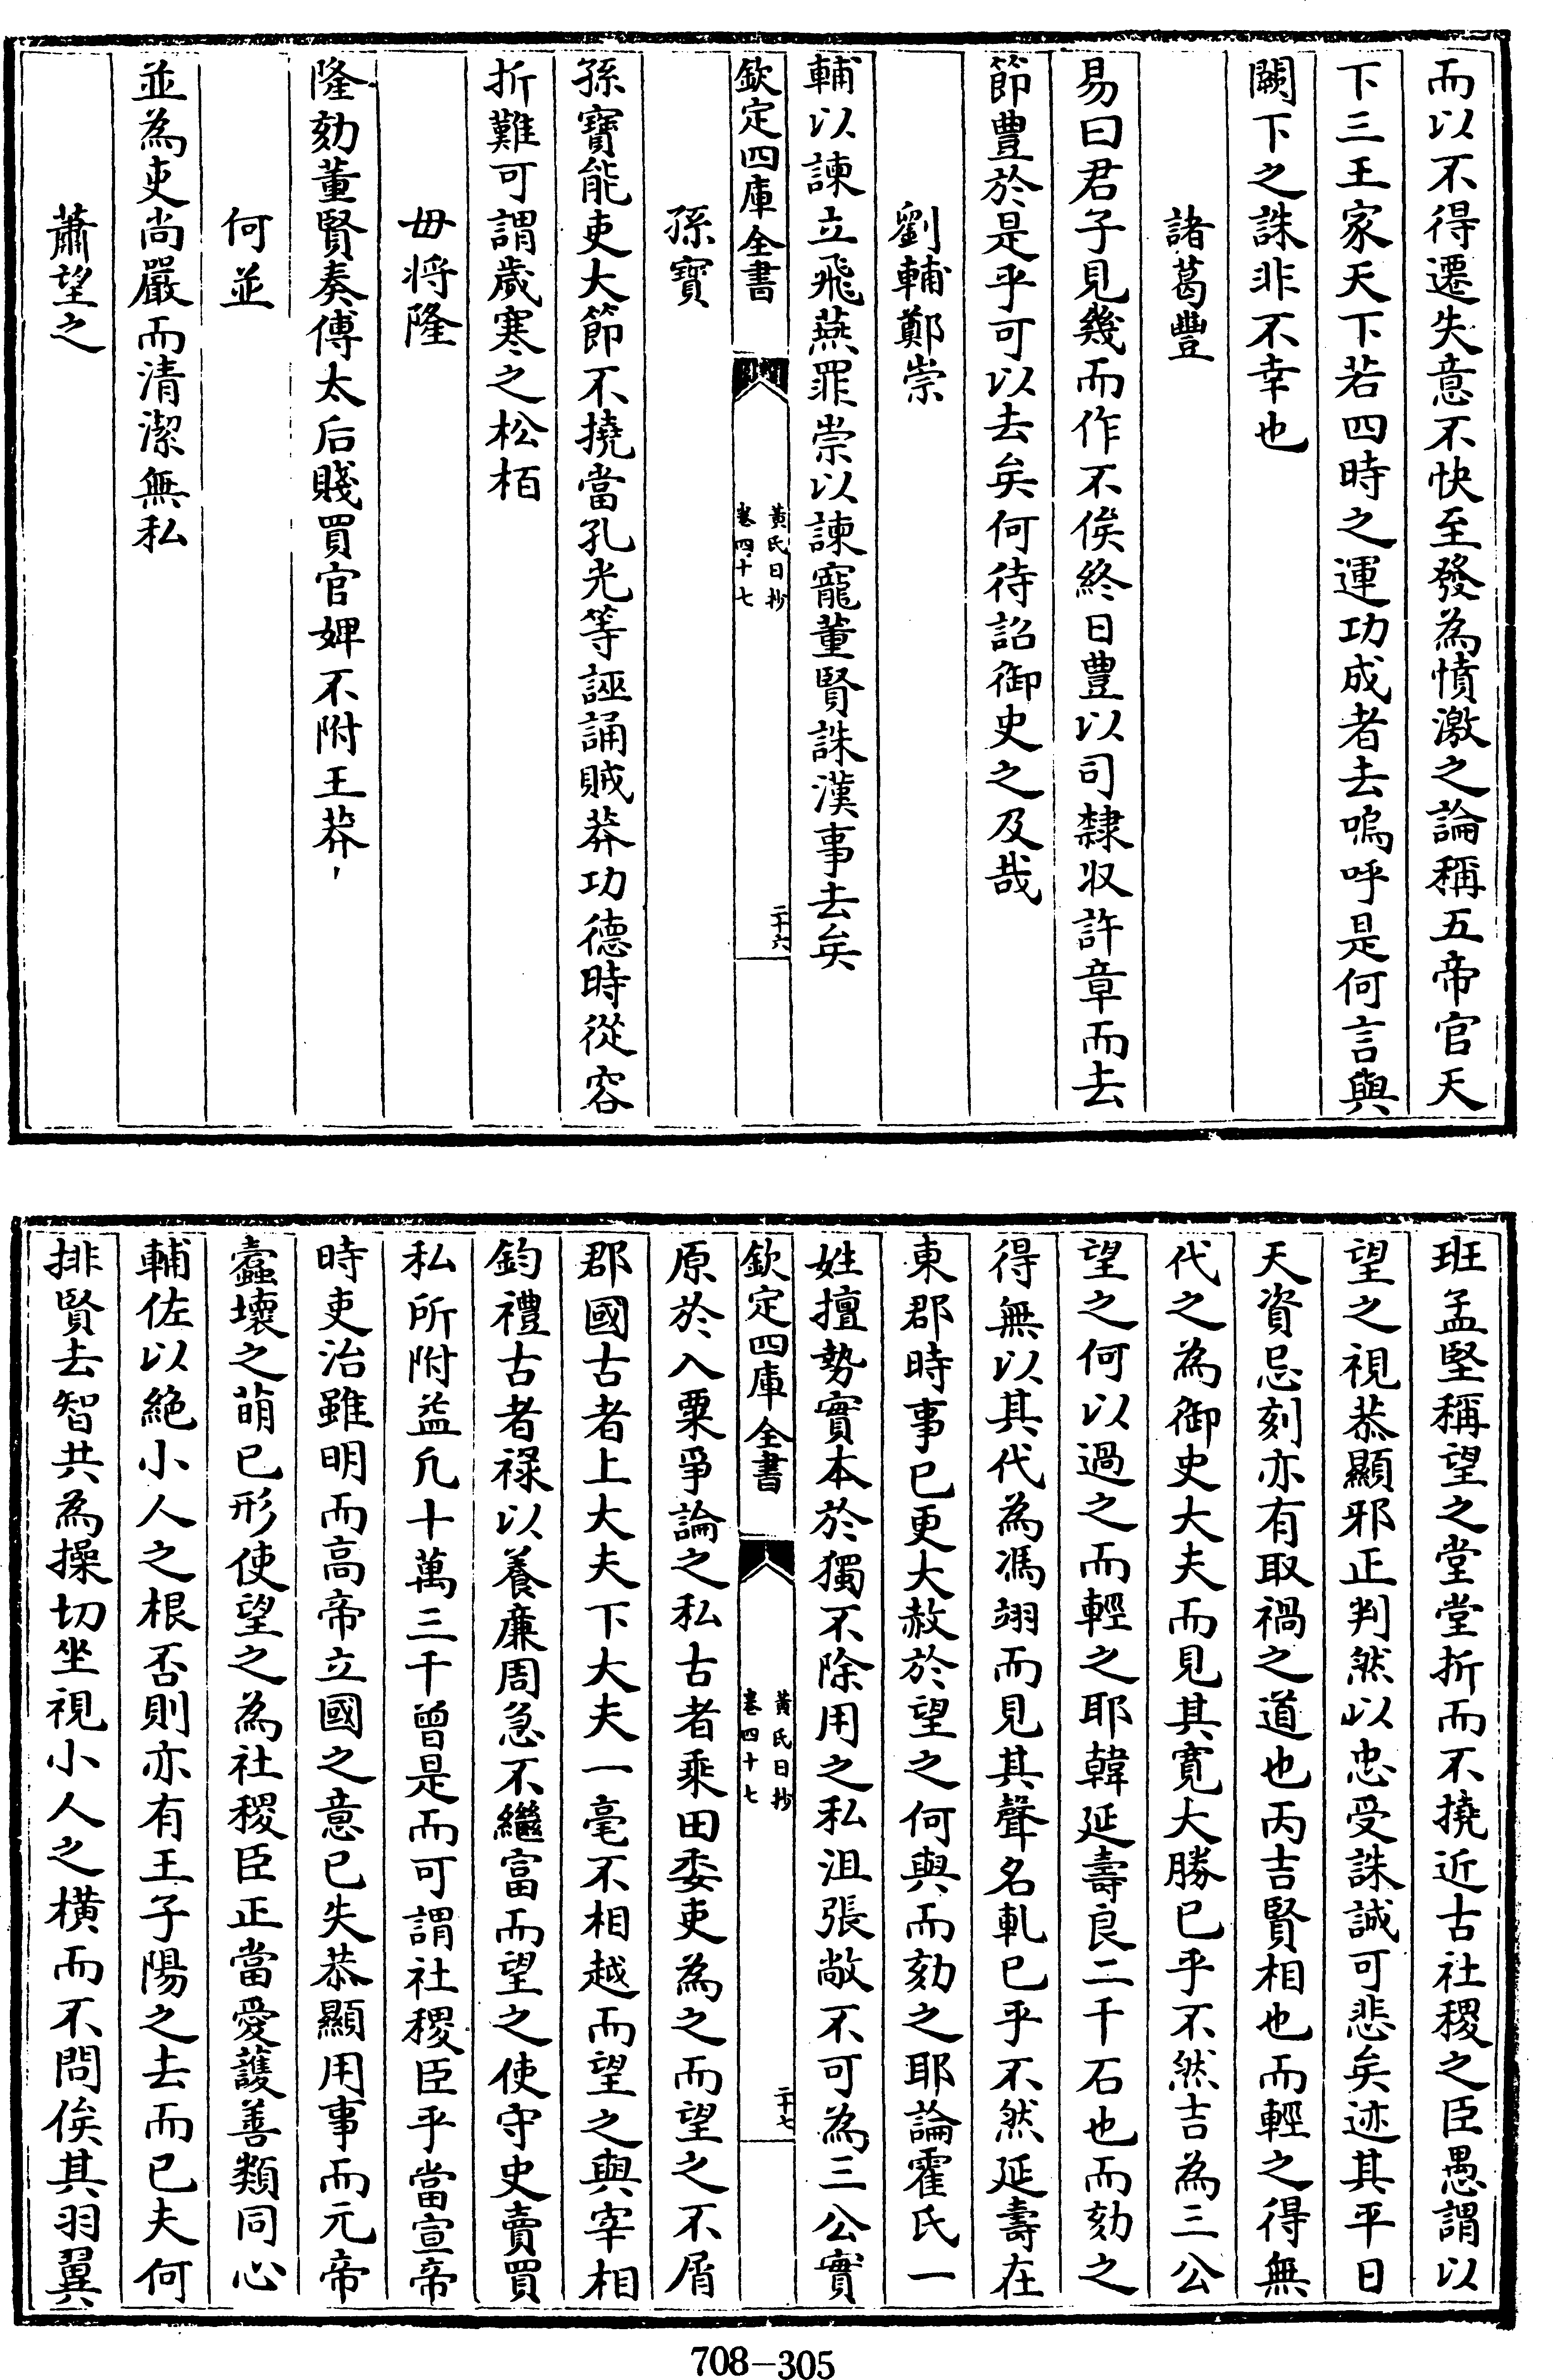 而以不得遷失意不快至發為憤激之論稱五帝官天
下三王家天下若四時之運功成者去嗚呼是何言與
闕下之誅非不幸也
諸葛豐
易曰君子見幾而作不俟終日豊以司隸収許章而去
節豊於是乎可以去矣何待詔御史之及哉
劉輔鄭崇
輔以諫立飛燕罪崇以諫寵董賢誅漢事去矣
欽定四庫全書
黃氏日抄
卷四十七
二十六
孫寶
孫寶能吏大節不撓當孔光等誣誦賊莽功德時從容
折難可謂歲寒之松栢
毋將隆
隆劾董賢奏傅太后賤買官婢不附王莽
何並
並為吏尚嚴而清潔無私
蕭望之
班孟堅稱望之堂堂折而不撓近古社稷之臣愚謂以
望之視恭顯邪正判然以忠受誅誠可悲矣迹其平日
天資忌刻亦有取禍之道也丙吉賢相也而輕之得無
代之為御史大夫而見其寛大勝已乎不然吉為三公
望之何以過之而輕之耶韓延壽良二千石也而劾之
得無以其代為馮翊而見其聲名軋已乎不然延壽在
東郡時事已更大赦於望之何與而劾之耶論霍氏一
姓擅勢實本於獨不除用之私沮張敞不可為三公實
欽定四庫全書
黃氏日抄
卷四十七
二十七
原於入粟爭論之私古者乘田委吏為之而望之不屑
郡國古者上大夫下大夫一毫不相越而望之與宰相
鈞禮古者祿以養廉周急不繼富而望之使守史賣買
私所附益凡十萬三千曾是而可謂社稷臣乎當宣帝
時吏治雖明而高帝立國之意已失恭顯用事而元帝
蠧壞之萌已形使望之為社稷臣正當愛護善類同心
輔佐以絶小人之根否則亦有王子陽之去而已夫何
排賢去智共為操切坐視小人之橫而不問俟其羽翼
708-305